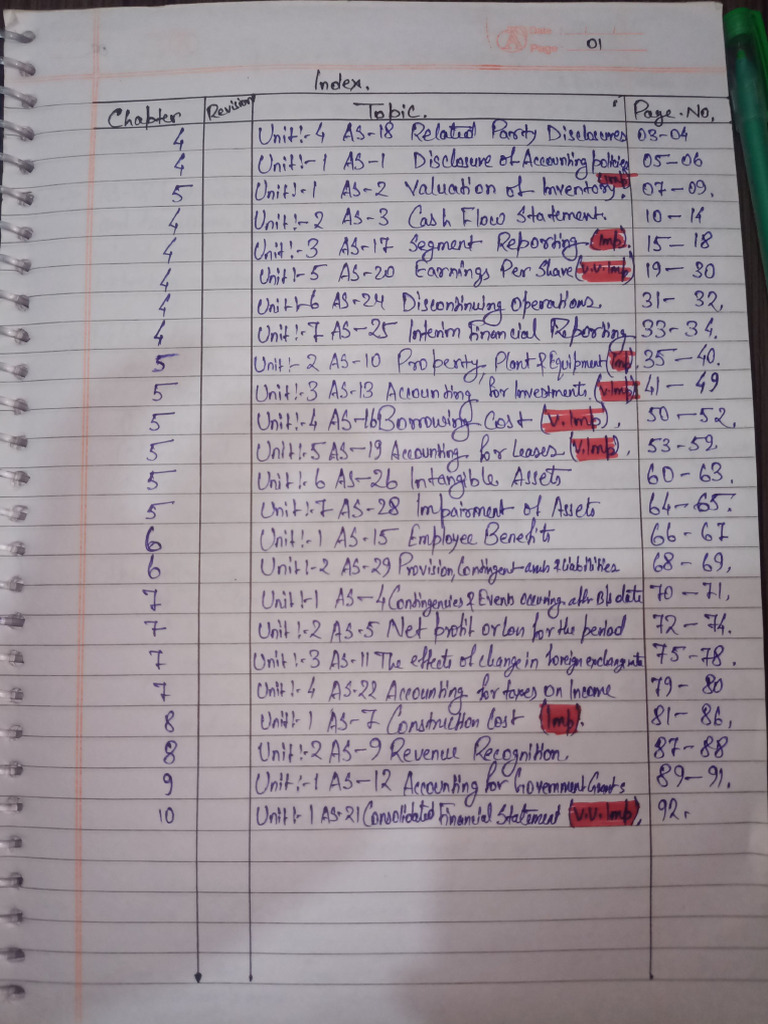 Date
Page 01
Index.
Chapter Revision Topic. Page.No.
4 Unit:-4 AS-18 Related Party Disclosures 03-04
4 Unit:-1 AS-1 Disclosure of Accounting policies 05-06
5 Unit:-1 AS-2 Valuation of Inventory. (Imp) 07-09.
4 Unit:-2 AS-3 Cash Flow Statement. 10-14
4 Unit:-3 AS-17 Segment Reporting (Imp). 15-18
4 Unit:-5 AS-20 Earnings Per Share (V.V.Imp) 19-30
4 Unit:-6 AS-24 Discontinuing Operations. 31-32,
4 Unit:-7 AS-25 Interim Financial Reporting 33-34.
5 Unit:-2 AS-10 Property, Plant & Equipment (Imp). 35-40.
5 Unit:-3 AS-13 Accounting for Investments. (V.Imp) 41-49
5 Unit:-4 AS-16 Borrowing Cost (V.Imp). 50-52.
5 Unit:-5 AS-19 Accounting for Leases (V.Imp). 53-59
5 Unit:-6 AS-26 Intangible Assets 60-63.
5 Unit:-7 AS-28 Impairment of Assets 64-65.
6 Unit:-1 AS-15 Employee Benefits 66-67
6 Unit:-2 AS-29 Provision, Contingent & Liabilities 68-69,
7 Unit:-1 AS-4 Contingencies & Events occuring after B/s date 70-71,
7 Unit:-2 AS-5 Net profit or loss for the period 72-74.
7 Unit:-3 AS-11 The effects of change in foreign exchange rate 75-78.
7 Unit:-4 AS-22 Accounting for taxes on Income 79-80
8 Unit:-1 AS-7 Construction Cost (Imp). 81-86,
8 Unit:-2 AS-9 Revenue Recognition. 87-88
9 Unit:-1 AS-12 Accounting for Government Grants 89-91.
10 Unit:-1 AS-21 Consolidated Financial Statement (V.V.Imp), 92.